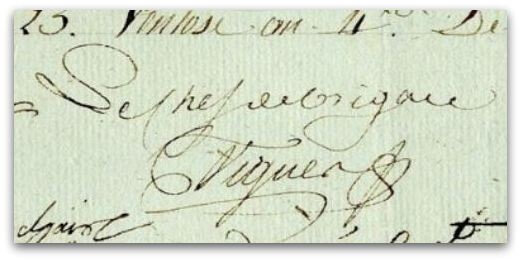 23. Ventose an 4e. De
Le chef de brigade
Viguer